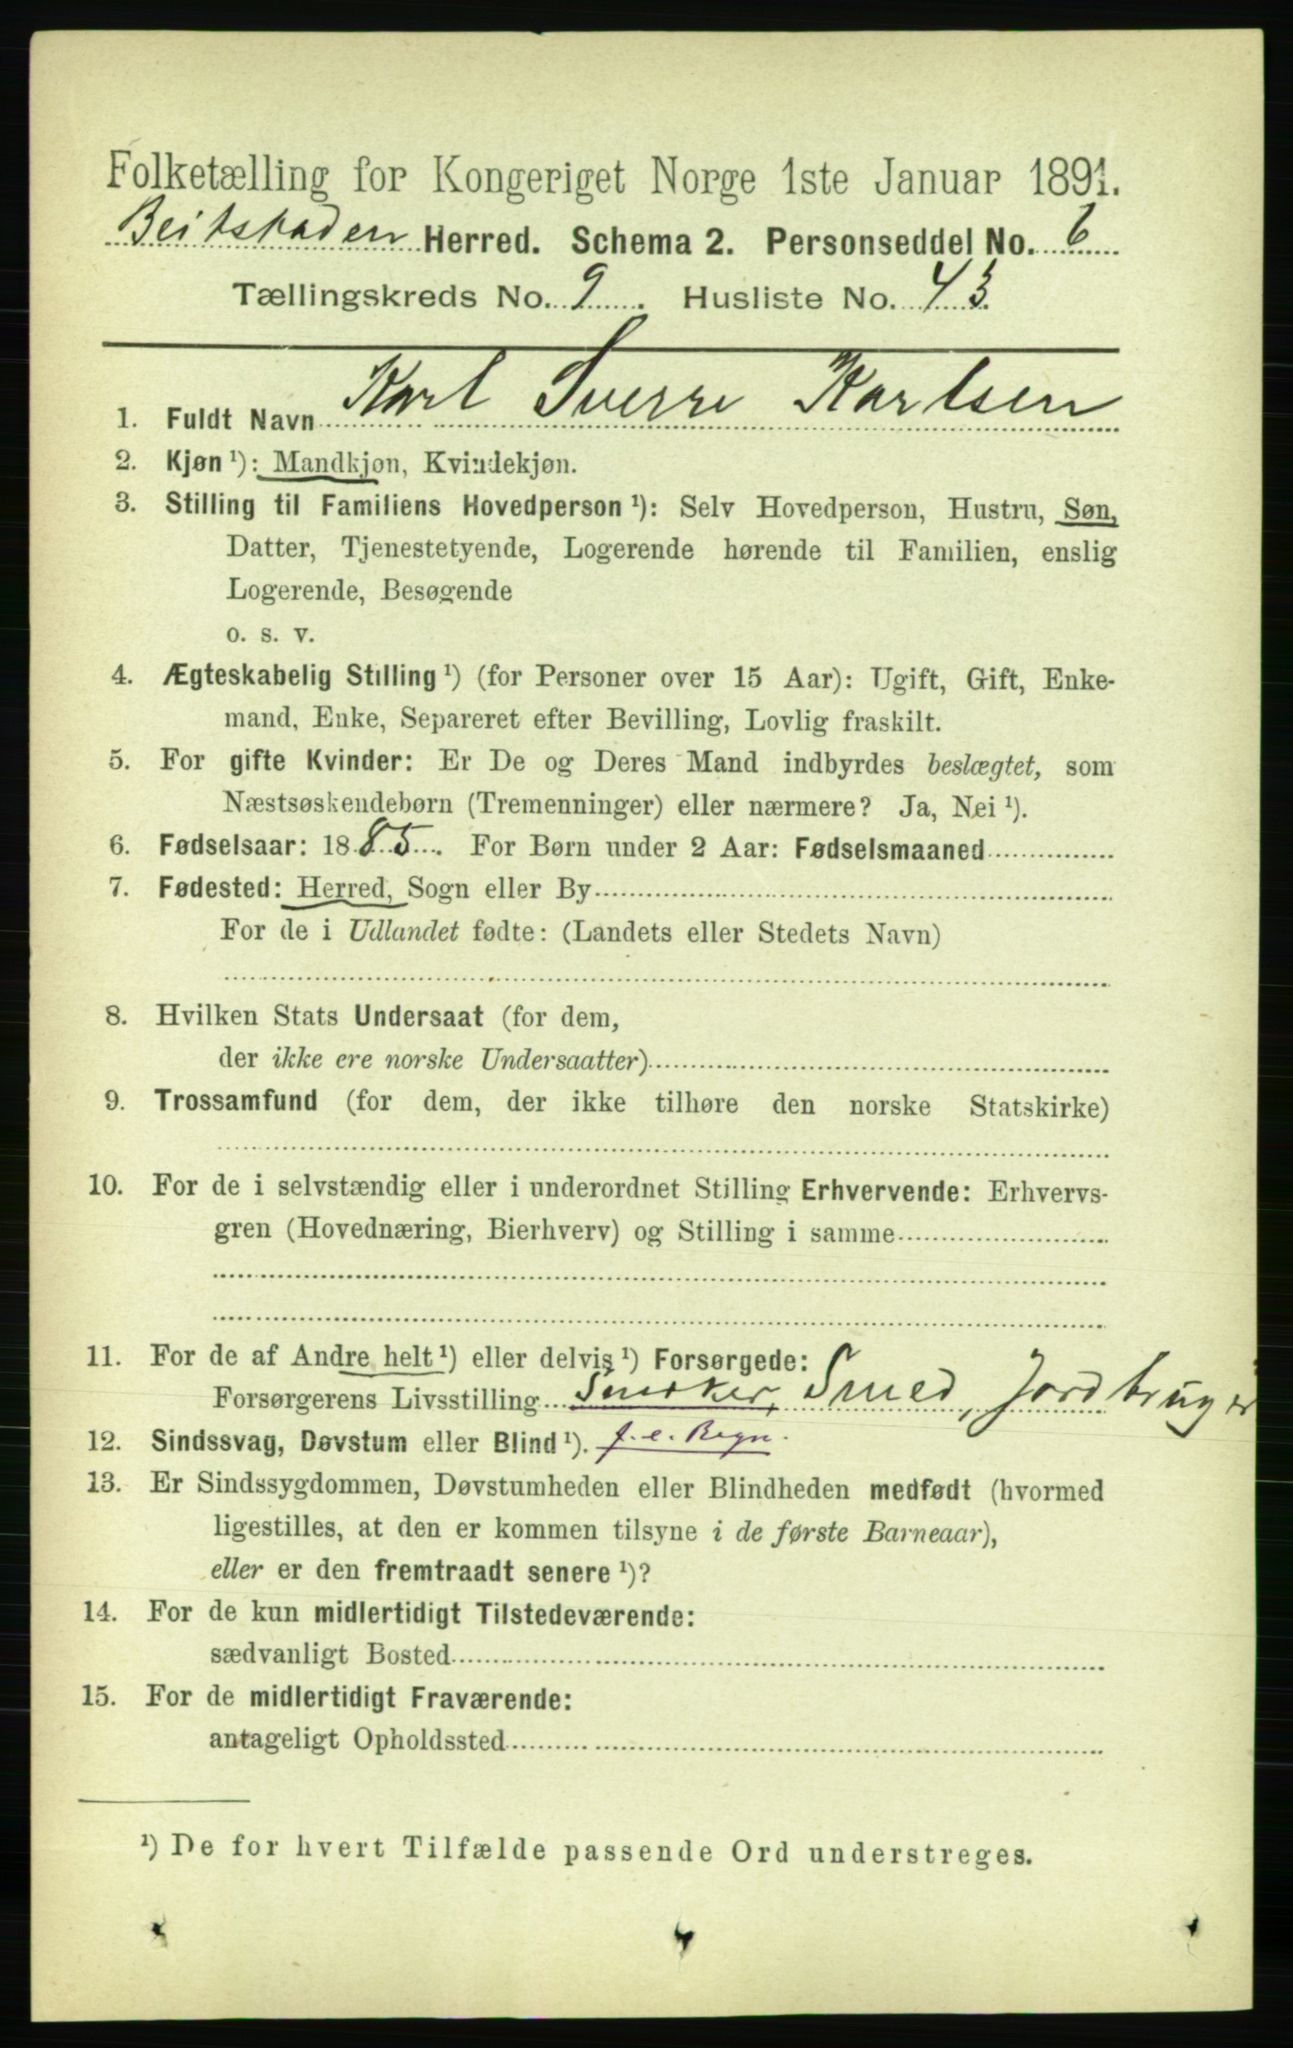 Folketælling for Kongeriget Norge 1ste Januar 1891.
Beitstaden Herred. Schema 2. Personseddel No. 6
Tællingskreds No. 9. Husliste No. 43.
1. Fuldt Navn Karl Sverre Karlsen
2. Kjøn ¹): Mandkjøn, Kvindekjøn.
3. Stilling til Familiens Hovedperson ¹): Selv Hovedperson, Hustru, Søn,
Datter, Tjenestetyende, Logerende hørende til Familien, enslig
Logerende, Besøgende
o. s. v.
4. Ægteskabelig Stilling ¹) (for Personer over 15 Aar): Ugift, Gift, Enke-
mand, Enke, Separeret efter Bevilling, Lovlig fraskilt.
5. For gifte Kvinder: Er De og Deres Mand indbyrdes beslægtet, som
Næstsøskendebørn (Tremenninger) eller nærmere? Ja, Nei ¹).
6. Fødselsaar: 1885. For Børn under 2 Aar: Fødselsmaaned
7. Fødested: Herred, Sogn eller By
For de i Udlandet fødte: (Landets eller Stedets Navn)
8. Hvilken Stats Undersaat (for dem,
der ikke ere norske Undersaatter)
9. Trossamfund (for dem, der ikke tilhøre den norske Statskirke)
10. For de i selvstændig eller i underordnet Stilling Erhvervende: Erhvervs-
gren (Hovednæring, Bierhverv) og Stilling i samme
11. For de af Andre helt ¹) eller delvis ¹) Forsørgede:
Forsørgerens Livsstilling Snedker, Smed, Jordbruger
12. Sindssvag, Døvstum eller Blind ¹). f. e. Regn.
13. Er Sindssygdommen, Døvstumheden eller Blindheden medfødt (hvormed
ligestilles, at den er kommen tilsyne i de første Barneaar),
eller er den fremtraadt senere ¹)?
14. For de kun midlertidigt Tilstedeværende:
sædvanligt Bosted
15. For de midlertidigt Fraværende:
antageligt Opholdssted
¹) De for hvert Tilfælde passende Ord understreges.